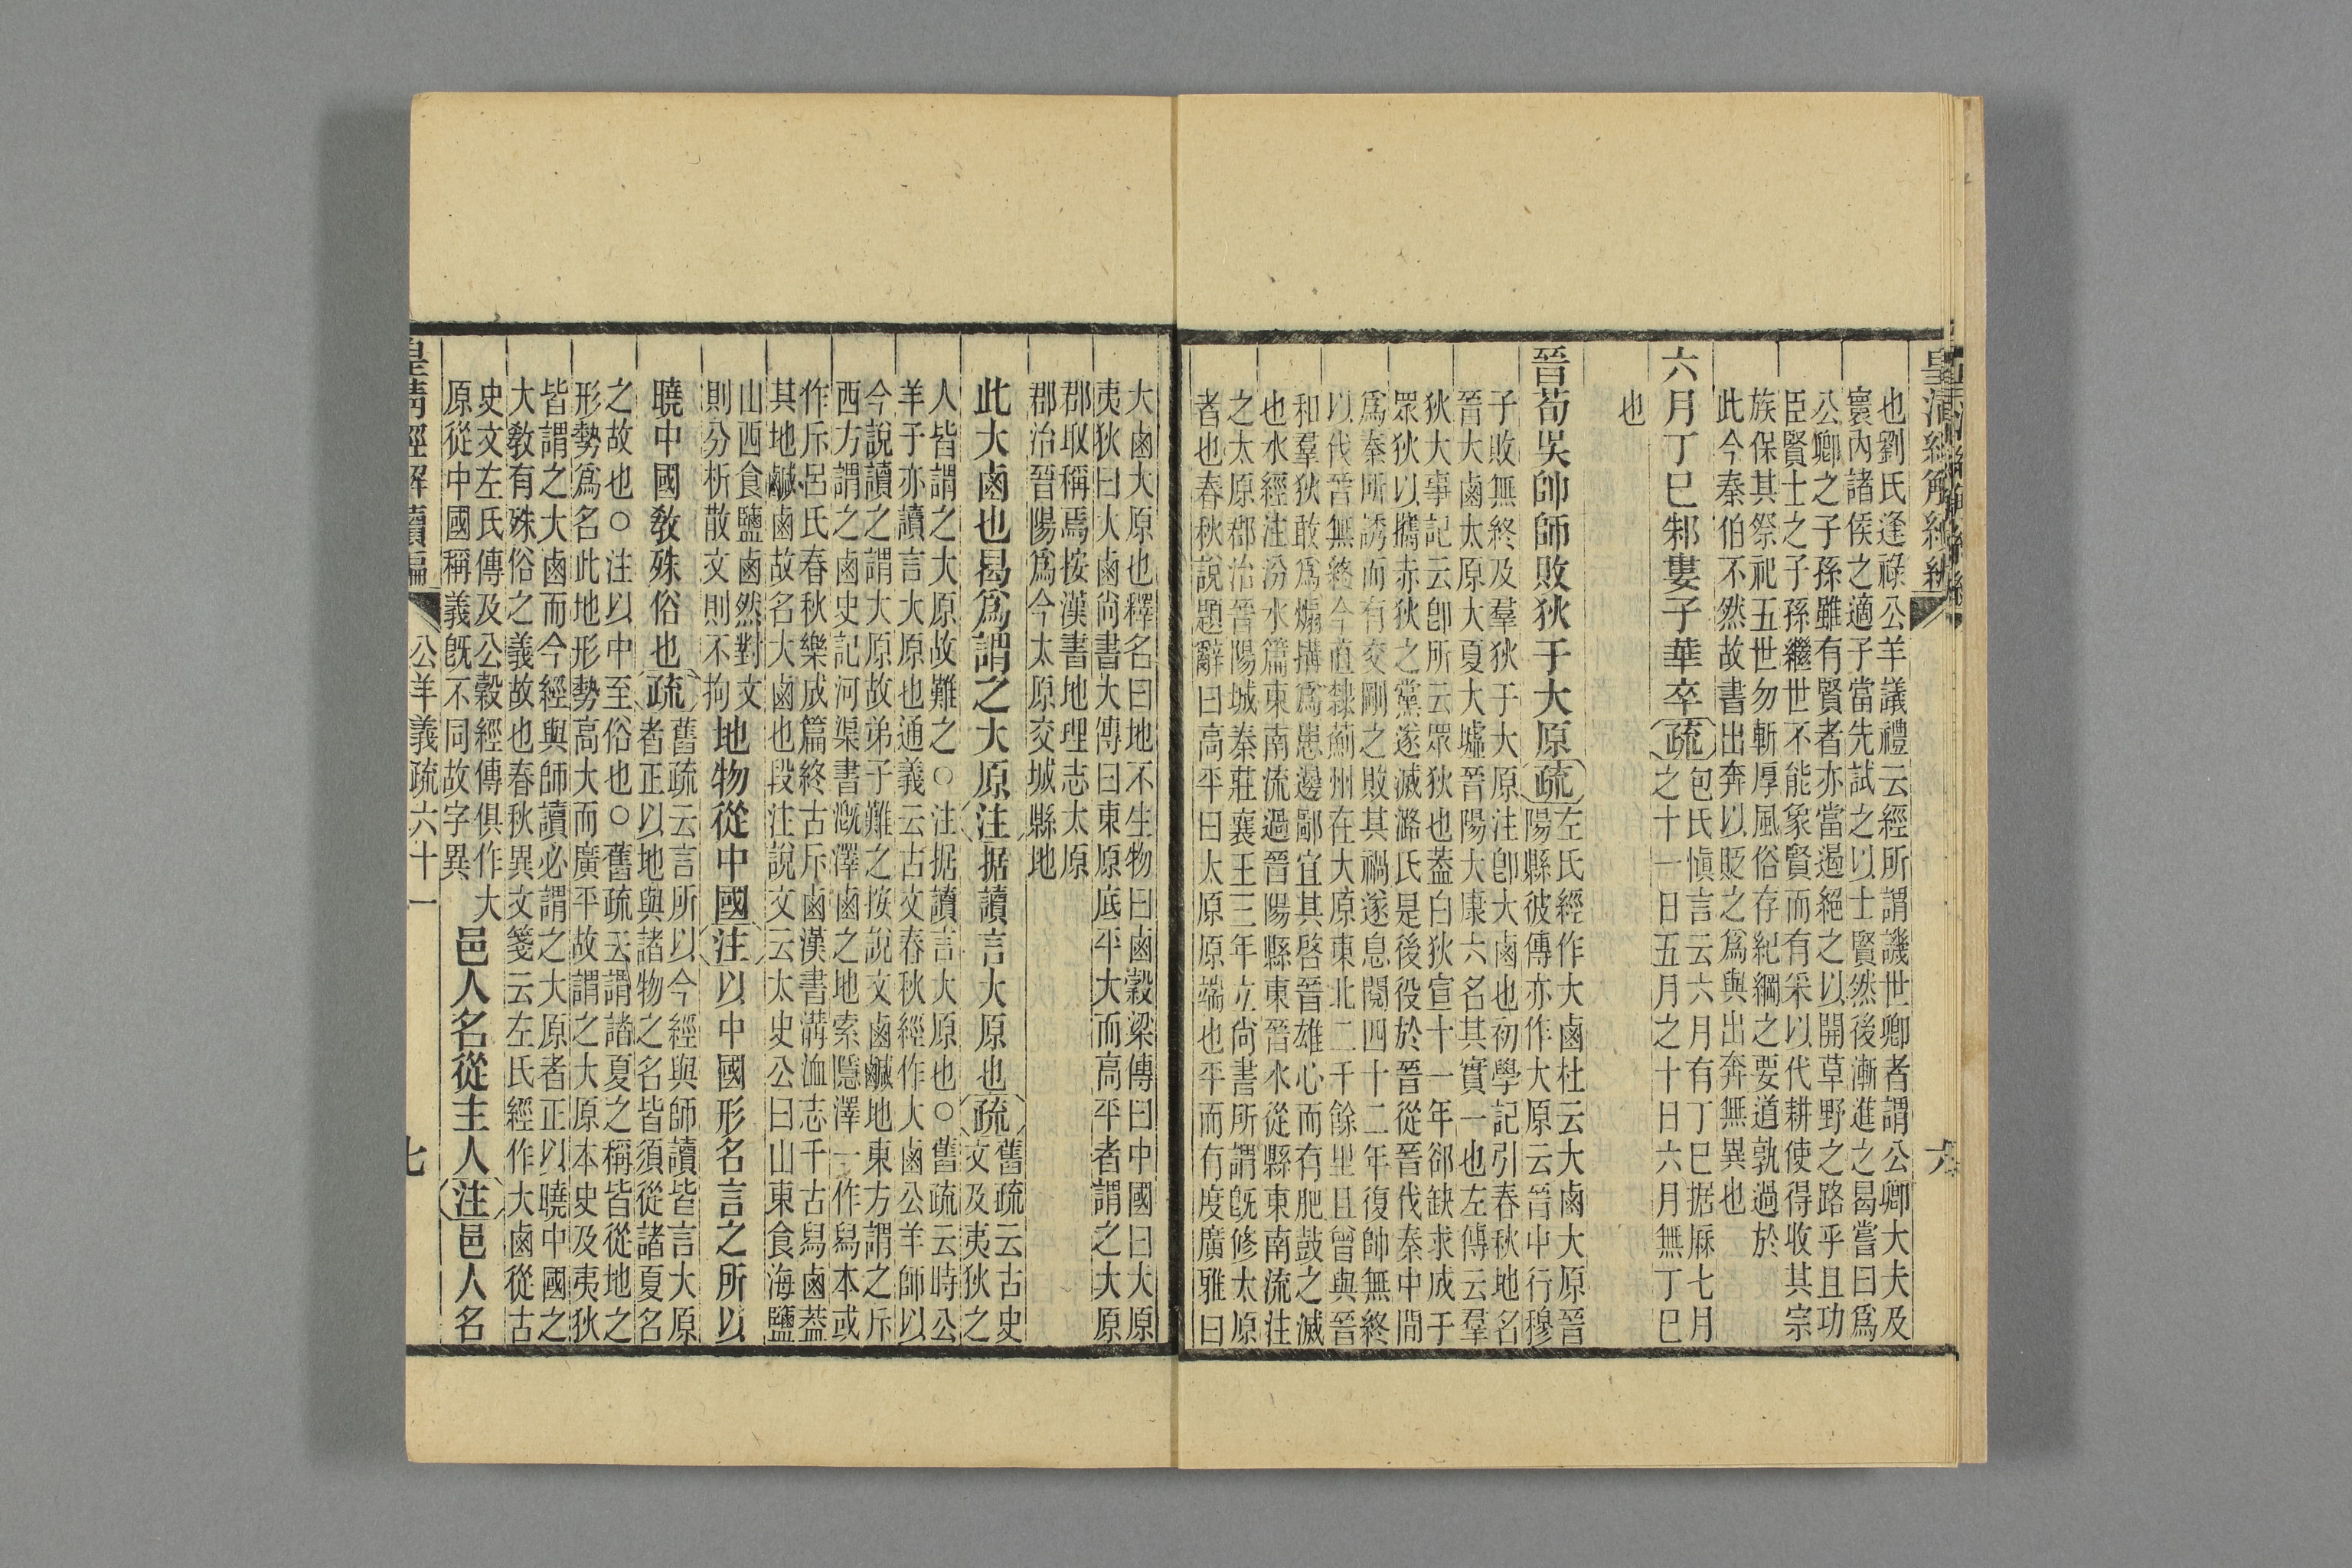 皇清經解續編
六
也劉氏逢祿公羊議禮云經所謂譏世卿者謂公卿大夫及
寰內諸侯之適子當先試之以士賢然後漸進之曷嘗曰爲
公卿之子孫雖有賢者亦當遏絕之以開草野之路乎且功
臣賢士之子孫繼世不能象賢而有采以代耕使得收其宗
族保其祭祀五世勿斬厚風俗存紀綱之要道孰過於
此今秦伯不然故書出奔以貶之爲與出奔無異也
六月丁巳邾婁子華卒
疏
包氏愼言云六月有丁巳据厤七月
之十一日五月之十日六月無丁巳
也
晉荀吳帥師敗狄于大原
疏
左氏經作大鹵杜云大鹵大原晉
陽縣彼傳亦作大原云晉中行穆
子敗無終及羣狄于大原注卽大鹵也初學記引春秋地名
晉大鹵太原大夏大墟晉陽大康六名其實一也左傳云羣
狄大事記云卽所云眾狄也蓋白狄宣十一年郤缺求成于
眾狄以攜赤狄之黨遂滅潞氏是後役於晉從晉伐秦中閒
爲秦所誘而有交剛之敗其禍遂息閱四十二年復帥無終
以伐晉無終今直隸薊州在大原東北二千餘里且曾與晉
和羣狄敢爲煽搆爲患邊鄙宜其啓晉雄心而有肥鼓之滅
也水經注汾水篇東南流過晉陽縣東晉水從縣東南流注
之太原郡治晉陽城秦莊襄王三年立尚書所謂旣修太原
者也春秋說題辭曰高平曰太原原端也平而有度廣雅曰
大鹵大原也釋名曰地不生物曰鹵穀梁傳曰中國曰大原
夷狄曰大鹵尚書大傳曰東原底平大而高平者謂之大原
郡取稱焉按漢書地理志太原
郡治晉陽爲今太原交城縣地
此大鹵也曷爲謂之大原
注
据讀言大原也
疏
舊疏云古史
文及夷狄之
人皆謂之大原故難之○注据讀言大原也○舊疏云時公
羊子亦讀言大原也通義云古文春秋經作大鹵公羊師以
今說讀之謂大原故弟子難之按說文鹵鹹地東方謂之斥
西方謂之鹵史記河渠書漑澤鹵之地索隱澤一作舄本或
作斥呂氏春秋樂成篇終古斥鹵漢書溝洫志千古舄鹵葢
其地鹹鹵故名大鹵也段注說文云太史公曰山東食海鹽
山西食鹽鹵然對文
則分析散文則不拘
地物從中國
注
以中國形名言之所以
曉中國敎殊俗也
疏
舊疏云言所以今經與師讀皆言大原
者正以地與諸物之名皆須從諸夏名
之故也○注以中至俗也○舊疏云謂諸夏之稱皆從地之
形勢爲名此地形勢高大而廣平故謂之大原本史及夷狄
皆謂之大鹵而今經與師讀必謂之大原者正以曉中國之
大敎有殊俗之義故也春秋異文箋云左氏經作大鹵從古
史文左氏傳及公穀經傳俱作大
原從中國稱義旣不同故字異
邑人名從主人
注
邑人名
皇清經解續編
公羊義疏六十一
七